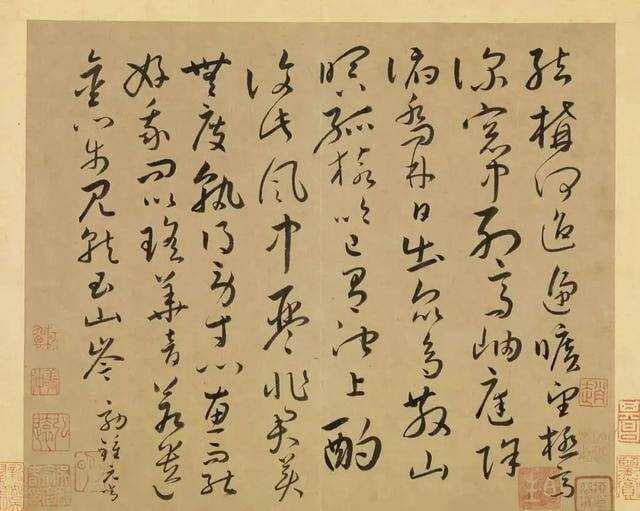 結構何迢遞曠望極高
深窓中列高岫庭際
俯喬林日出众鳥散山
暝孤猿吟已有池上酌
復此風中琴非君美
無度孰為勞寸心惠而能
好我問以瑤華音若遺
金門步見就玉山岑 効鍾元常